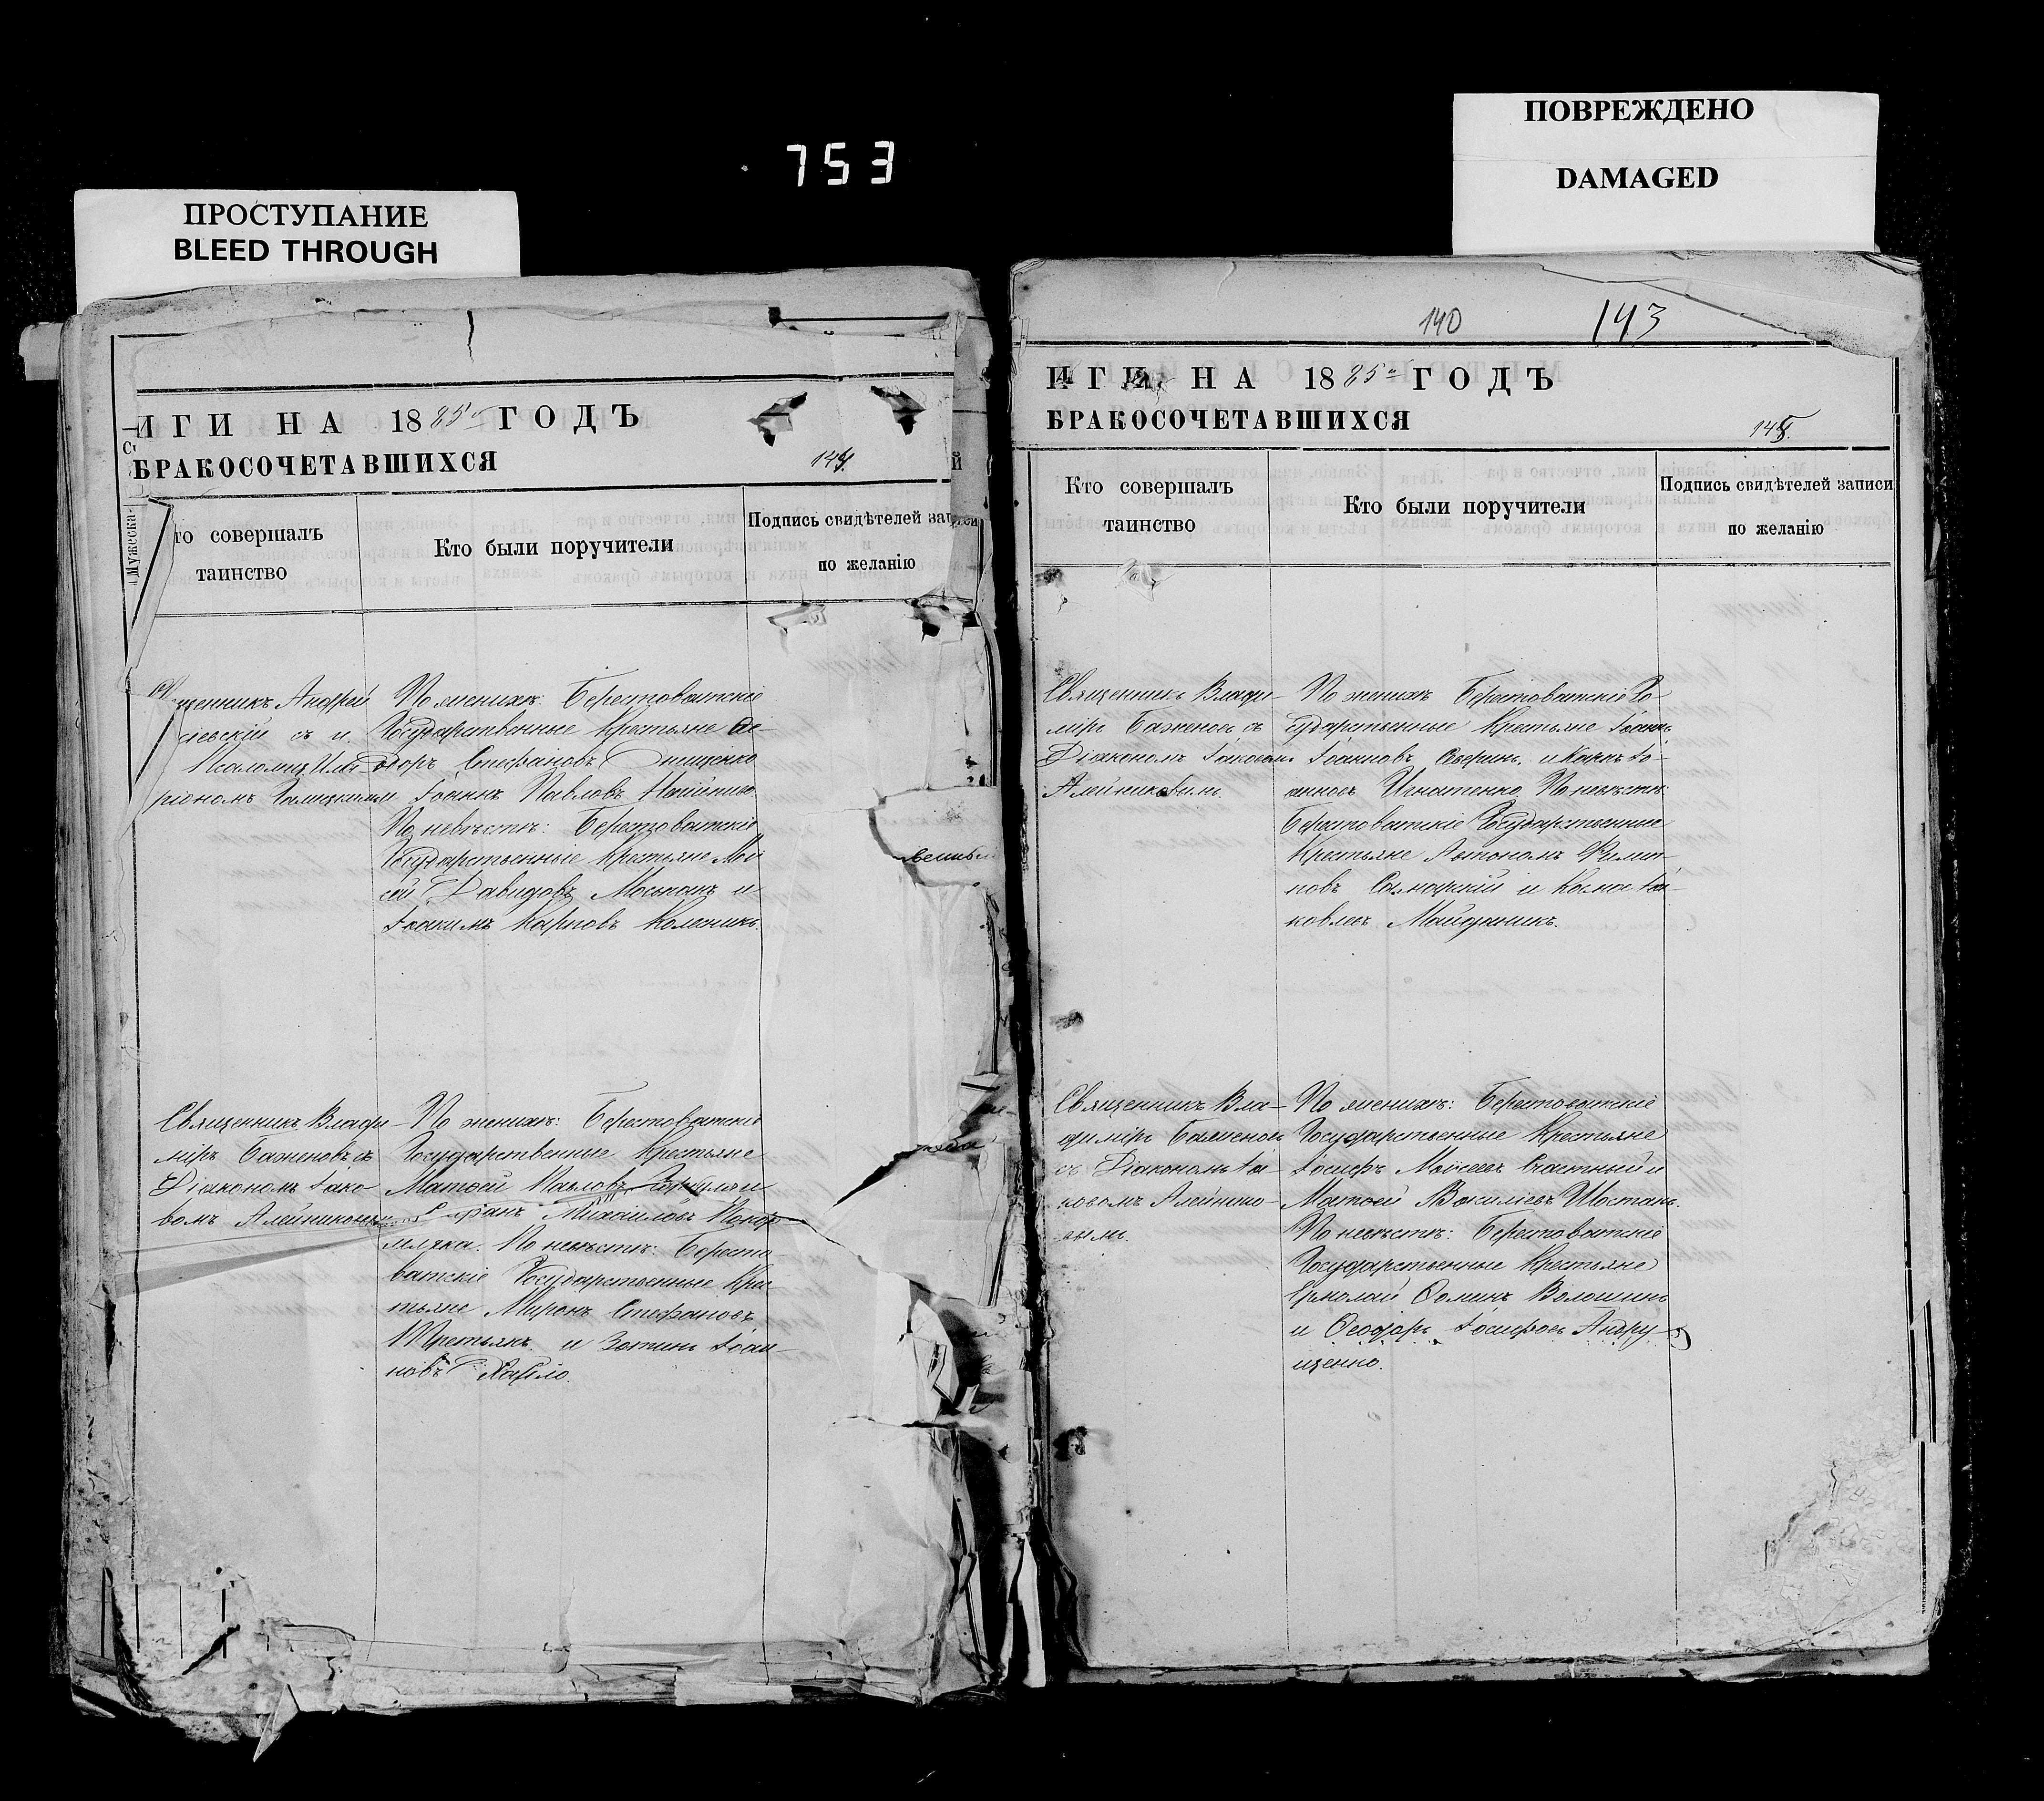 753
ПРОСТУПАНИЕ
BLEED THROUGH
ПОВРЕЖДЕНО
DAMAGED
ИГИ НА 1885 ГОДЪ
БРАКОСОЧЕТАВШИХСЯ
Мужеска
то совершалъ
таинство
Кто были поручители
Подпись свидѣтелей записи
по желанію
щенникъ Андрей
съ и.
Псаломщ. Ила-
ріономъ Галицкимъ
По женихѣ: Берестоватскіе
Государственные Крестьяне
Стефановъ Онищенко
Іоаннъ Павловъ
По невѣстѣ: Берестоватскіе
Государственные Крестьяне Мои
сей Давидовъ Москонъ и
Іоакимъ Карповъ Колесникъ.
Священникъ Влади-
міръ Баженовъ съ
Діакономъ Іако
вомъ Алейниковымъ
По женихѣ: Берестоватскіе
Государственные Крестьяне
Матѳей Павловъ
Михаиловъ
По невѣстѣ: Бересто
ватскіе Государственные Крес
тьяне Миронъ Стефановъ
Третьякъ и Зотикъ Іоан
новъ
140
143
ИГИ НА 1885 ГОДЪ
БРАКОСОЧЕТАВШИХСЯ
Кто совершалъ
таинство
Кто были поручители
Подпись свидѣтелей записи
по желанію
Священникъ Влади-
міръ Баженовъ съ
Діакономъ Іаковомъ
Алейниковымъ.
По женихѣ Берестоватскіе Го-
сударственные Крестьяне Іоаннъ
Іоанновъ Северинъ и Карпъ Іо-
анновъ Игнатенко. По невѣстѣ:
Берестоватскіе Государственные
Крестьяне Автономъ Филип-
повъ и Косма Іа-
ковлевъ Майданикъ.
Священникъ Вла-
диміръ Баженовъ
съ Діакономъ Іа-
ковомъ Алейнико-
вымъ.
По женихѣ: Берестоватскіе
Государственные Крестьяне
Іосифъ Моисеевъ Счастный и
Матѳей Василіевъ Шостакъ.
По невѣстѣ: Берестоватскіе
Государственные Крестьяне
Ермолай Ѳоминъ Волошинъ
и Ѳеодоръ Іосифовъ Андру-
щенко.